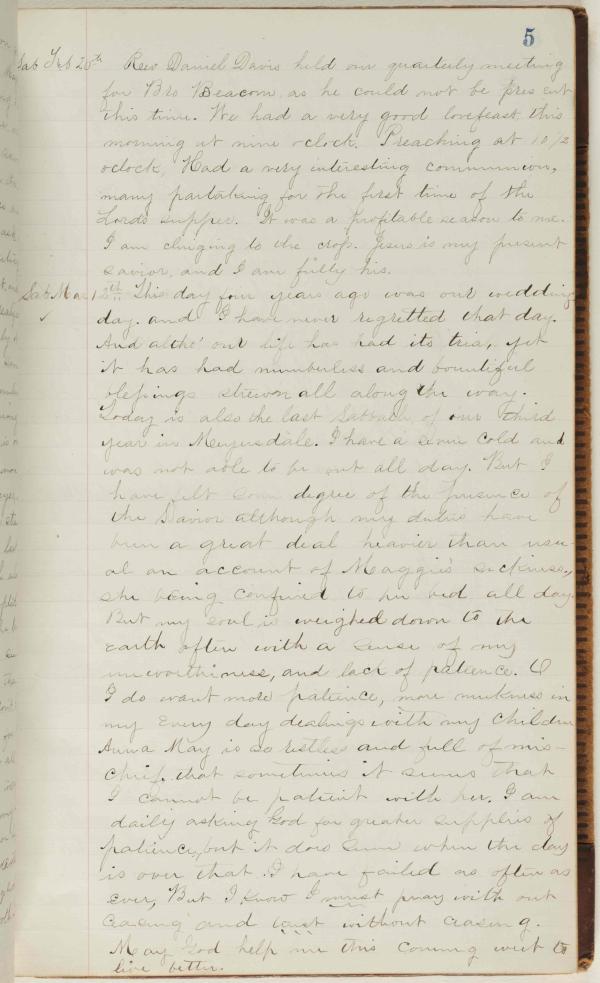 5
Sab Feb 26th Rev Daniel Davis held our quarterly meeting
for Bro Beacom, as he could not be pres ent
this time. We had a very good lovefeast this
morning at nine oclock. Preaching at 10 1/2
oclock, Had a very interesting communion,
many partaking for the first time of the
Lords supper. It was a profitable season to me.
I am clinging to the cross. Jesus is my present
savior, and I am fully his.
Sab Mar 12th This day four years ago was our wedding
✓ day. and I have never regretted that day.
And altho' our life has had its trial, yet
it has had numberless and bountiful
blessings strewn all along the way.
Today is also the last Sabbath of our third
year in Meyersdale. I have a severe cold and
was not able to be out all day. But I
have felt some degree of the presence of
the Savior although my duties have
been a great deal heavier than usu-
al on account of Maggie's sickness,
she being confined to her bed all day.
But my soul is weighed down to the
earth often with a sense of my
unworthiness, and lack of patience. O
I do want more patience, more meekness in
my every day dealings with my children
Anna May is so restless and full of mis-
chief, that sometimes it seems that
I cannot be patient with her. I am
daily asking God for greater supplies of
patience, but it does seem when the day
is over that I have failed as often as
ever, But I know I must pray with out
ceasing and trust without ceasing.
May God help me this coming week to
live better.